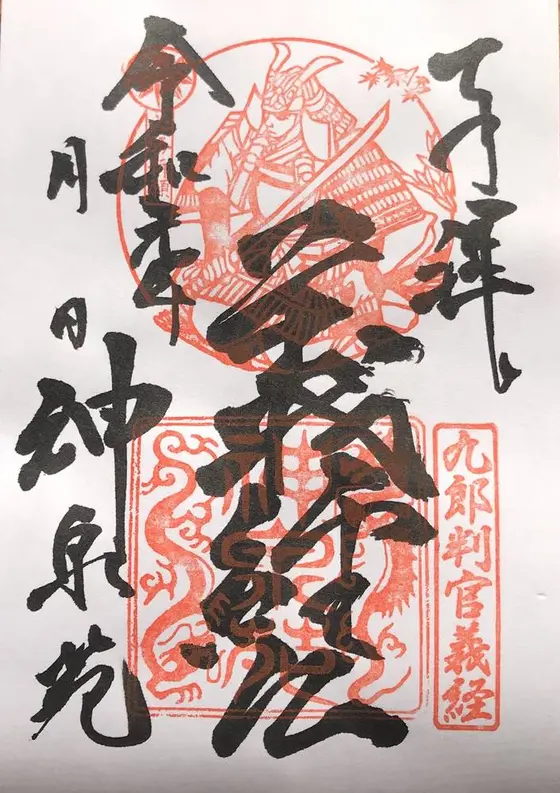 奉拝
九郎判官義経
義経公
令和元年
月 日
神泉苑